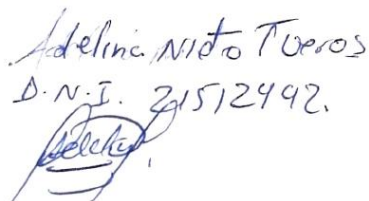 Adelina Nieto Tueros
D.N.I. 21512492.